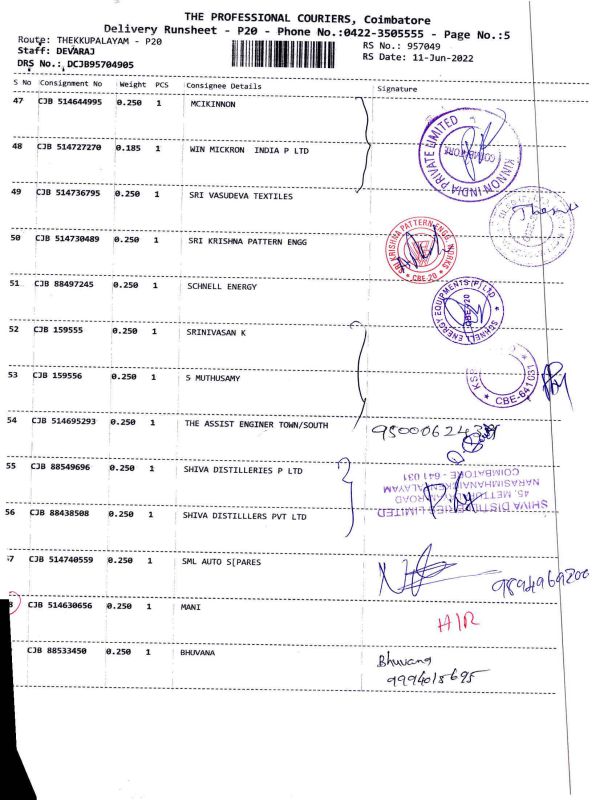 THE PROFESSIONAL COURIERS, Coimbatore
Delivery Runsheet - P20 - Phone No.:0422-3505555 - Page No.:5
Route: THEKKUPALAYAM - P20
RS No.: 957049
Staff: DEVARAJ
RS Date: 11-Jun-2022
DRS No.: DCJB95704905
S No Consignment No Weight PCS Consignee Details Signature
47 CJB 514644995 0.250 1 MCIKINNON
KINNON INDIA PRIVATE LIMITED
COIMBATORE
48 CJB 514727270 0.185 1 WIN MICKRON INDIA P LTD
49 CJB 514736795 0.250 1 SRI VASUDEVA TEXTILES
50 CJB 514730489 0.250 1 SRI KRISHNA PATTERN ENGG
SRI KRISHNA PATTERN ENGG WORKS
* CBE-20 *
51 CJB 88497245 0.250 1 SCHNELL ENERGY
SCHNELL ENERGY EQUIPMENTS (P) LTD
CBE-20
52 CJB 159555 0.250 1 SRINIVASAN K
53 CJB 159556 0.250 1 S MUTHUSAMY
KSP
* CBE-641 031
54 CJB 514695293 0.250 1 THE ASSIST ENGINER TOWN/SOUTH
55 CJB 88549696 0.250 1 SHIVA DISTILLERIES P LTD
SHIVA DISTILLERIES LIMITED
45, METTUPALAYAM ROAD
NARASIMHANAICKENPALAYAM
COIMBATORE - 641 031
56 CJB 88438508 0.250 1 SHIVA DISTILLLERS PVT LTD
57 CJB 514740559 0.250 1 SML AUTO S[PARES
9894969200
8 CJB 514630656 0.250 1 MANI
H/R
CJB 88533450 0.250 1 BHUVANA
Bhuvana
9994015695